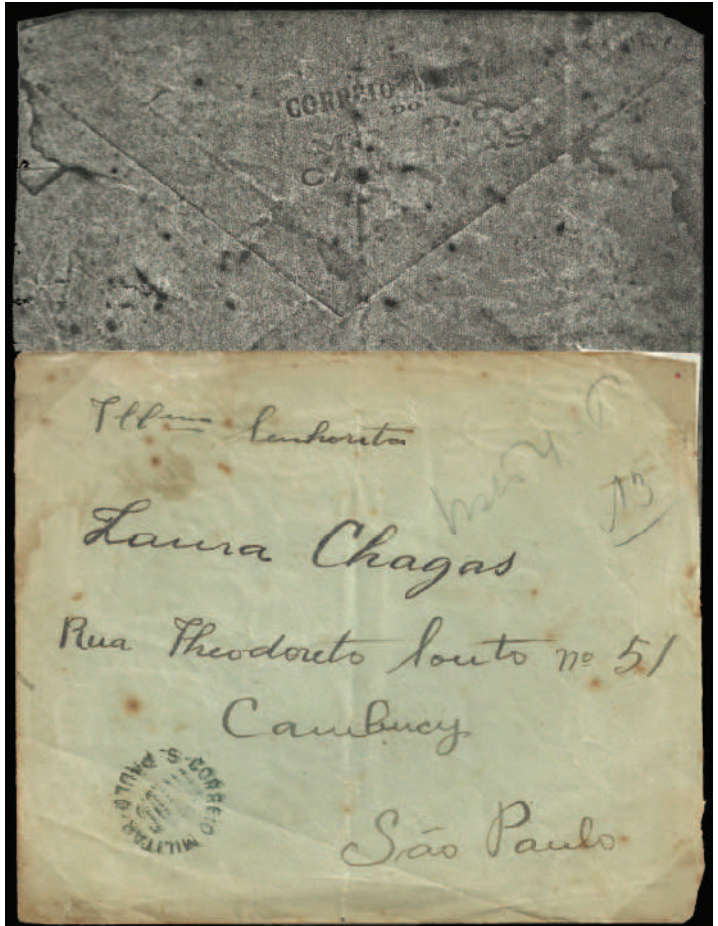 CORREIO
DO
Illma Senhorita
13
Laura Chagas
Rua Theodoreto Souto nº 51
Cambucy
São Paulo
CORREIO MILITAR
S. PAULO